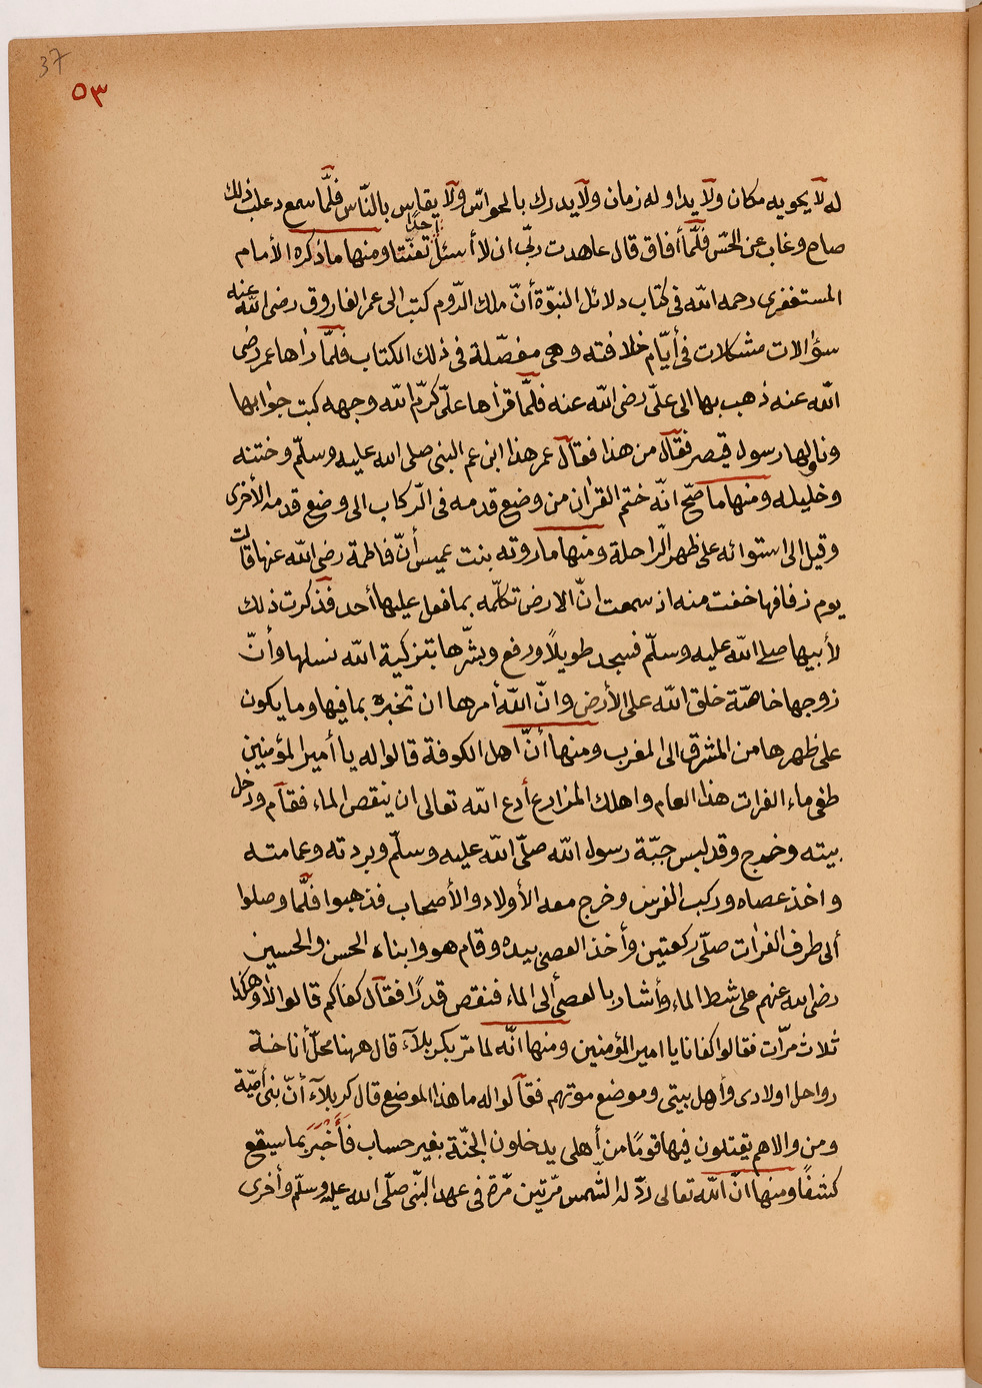 37
٥٣
له لا يحويه مكان ولا يداوله زمان ولا يدرك بالحواسّ ولا يقاس بالنّاس فلمّا سمع دعلب ذلك
صاح وغاب عن الحسّ فلمّا أفاق قال عاهدت ربّى ان لا أسئل أحدًا تعنّتا ومنها ما ذكره الأمام
المستغفرى رحمه الله فى كتاب دلائل النبوّة أنّ ملك الرّوم كتب الى عمر الفاروق رضى الله عنه
سؤالات مشكلات فى أيّام خلافته وهى مفصّلة فى ذلك الكتاب فلمّا رأها عمر رضى
الله عنه ذهب بها الى علىّ رضى الله عنه فلمّا قرأها علىّ كرّم الله وجهه كتب جوابها
وناولها رسول قيصر فقال من هذا فقال عمر هذا ابن عم النبى صلى الله عليه وسلّم وختنه
وخليله ومنها ما صحّ انّه ختم القران من وضع قدمه فى الرّكاب الى وضع قدمه الأخرى
وقيل الى استوائه على ظهر الرّاحلة ومنها ما روته بنت عميس أنّ فاطمة رضى الله عنها قالت
يوم زفافها خفت منه اذ سمعت انّ الارض تكلّمه بما فعل عليها أحد فذكرت ذلك
لأبيها صلى الله عليه وسلّم فسجد طويلاً ورفع وبشّرها بتزكية الله نسلها وأنّ
زوجها خاصّة خلق الله على الأرض وانّ الله أمرها ان تخبره بما فيها وما يكون
على ظهرها من المشرق الى المغرب ومنها أنّ اهل الكوفة قالوا له يا أمير المؤمنين
طغى ماء الفرات هذا العام واهلك المزارع أدع الله تعالى ان ينقص الماء فقام ودخل
بيته وخرج وقد لبس جبّة رسول الله صلّى الله عليه وسلّم وبردته وعمامته
واخذ عصاه وركب الفرس وخرج معه الأولاد والأصحاب فذهبوا فلمّا وصلوا
ألى طرف الفرات صلّى ركعتين وأخذ العصى بيده وقام هو وابناه الحسن والحسين
رضى الله عنهم على شط الماء وأشار بالعصى ألى الماء فنقص قدرًا فقال كفاكم قالوا لا وهكذا
ثلاث مرّات فقالوا كفانا يا امير المؤمنين ومنها انّه لما مرّ بكربلاء قال ههنا محلّ أناخة
رواحل اولادى وأهل بيتى وموضع موتهم فقالوا له ما هذا الموضع قال كربلاء أنّ بنى أميّة
ومن والاهم يقتلون فيها قومًا من أهلى يدخلون الجنّة بغير حساب فأخبر بما سيقع
كشفًا ومنها انّ الله تعالى ردّ له الشّمس مرّتين مرّة فى عهد النبّى صلّى الله عليه وسلّم وأخرى